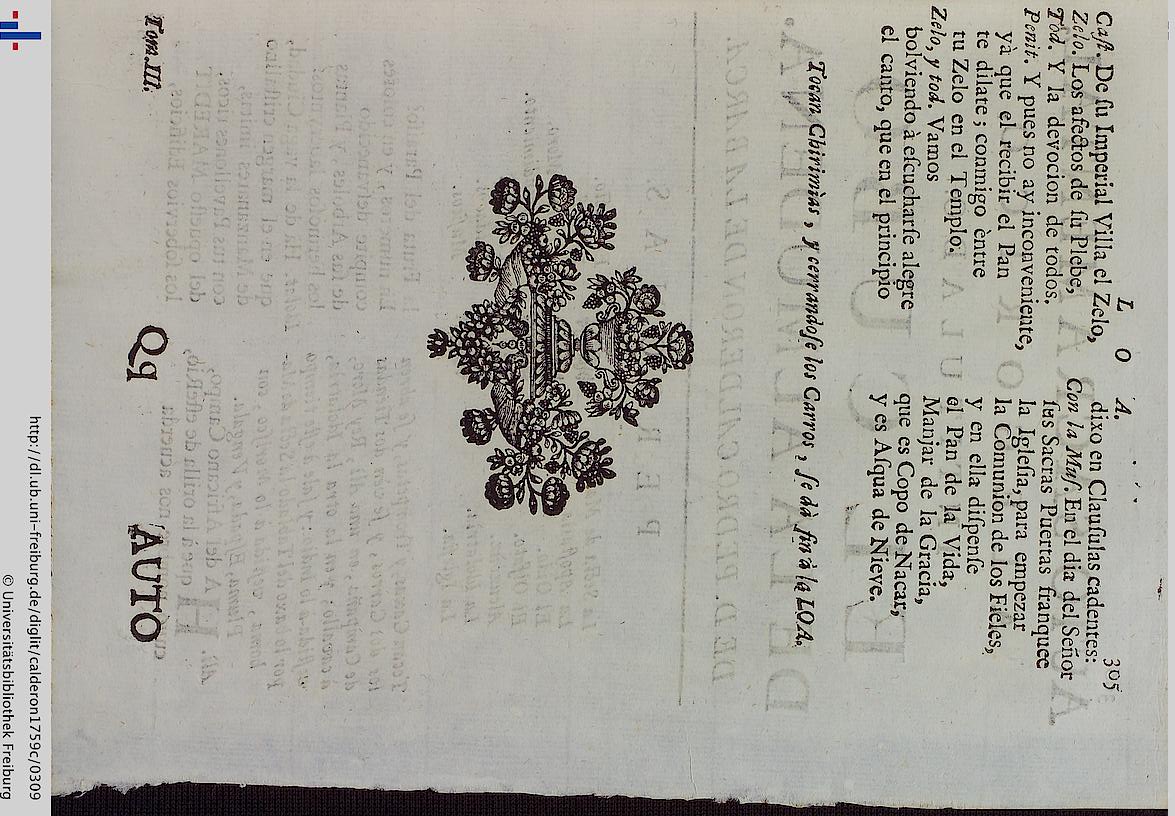 L O A. 305
Caſt. De ſu Imperial Villa el Zelo,
Zelo. Los afectos de ſu Plebe,
Tod. Y la devocion de todos.
Penit. Y pues no ay inconveniente,
yà que el recibir el Pan
te dilate; conmigo èntre
tu Zelo en el Templo.
Zelo, y tod. Vamos
bolviendo à eſcucharſe alegre
el canto, que en el principio
dixo en Clauſulas cadentes:
Con la Muſ. En el dia del Señor
ſus Sacras Puertas franquee
la Igleſia, para empezar
la Comunion de los Fieles,
y en ella diſpenſe
el Pan de la Vida,
Manjar de la Gracia,
que es Copo de Nacar,
y es Aſqua de Nieve.
Tocan Chirimìas, y cerrandoſe los Carros, ſe dà fin à la LOA.
Tom. III. Qq AUTO
http://dl.ub.uni-freiburg.de/diglit/calderon1759c/0309
© Universitätsbibliothek Freiburg